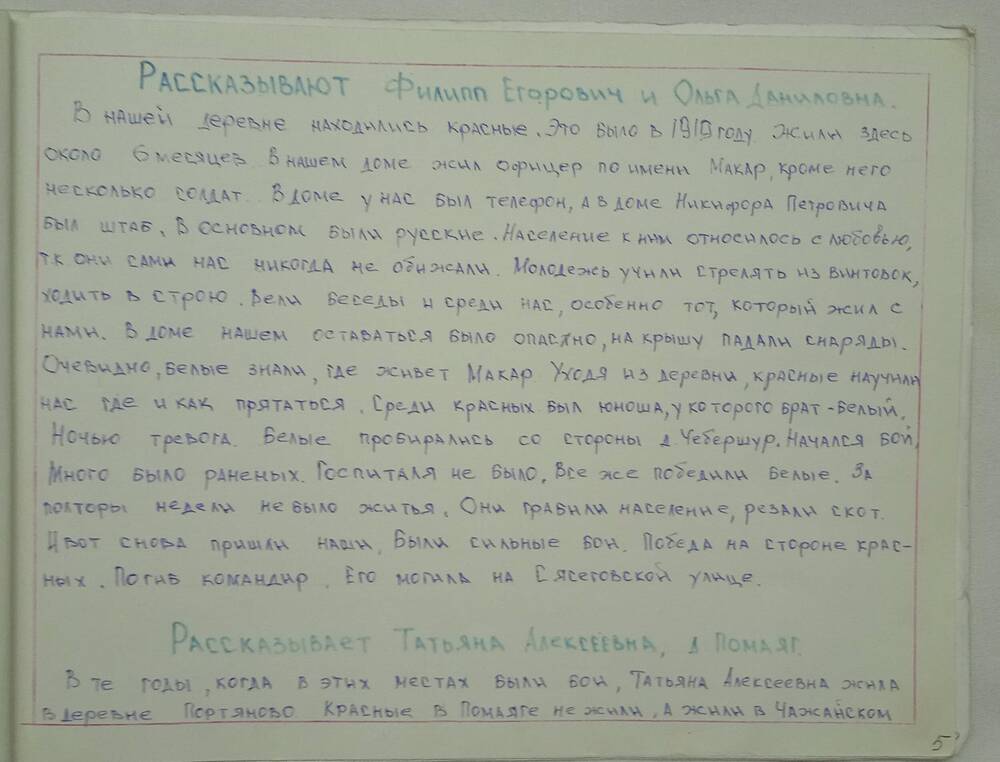 Рассказывают Филипп Егорович и Ольга Даниловна.
В нашей деревне находились красные. Это было в 1919 году жили здесь
около 6 месяцев В нашем доме жил офицер по имени Макар, кроме него
несколько солдат. В доме у нас был телефон, а в доме Никифора Петровича
был штаб. В основном были русские. Население к ним относилось с любовью,
т.к они сами нас никогда не обижали. Молодежь учили стрелять из винтовок,
ходить в строю. Вели беседы и среди нас, особенно тот, который жил с
нами. В доме нашем оставаться было опастно, на крышу падали снаряды.
Очевидно, белые знали, где живет Макар Уходя из деревни, красные научили
нас где и как прятаться. Среди красных был юноша, у которого брат - белый.
Ночью тревога. Белые пробирались со стороны д. Чебершур. Начался бой,
Много было раненых. Госпиталя не было. Все же победили белые. За
полторы недели не было житья. Они грабили население, резали скот.
И вот снова пришли наши. Были сильные бои. Победа на стороне крас-
ных. Погиб командир. Его могила на Сясеговской улице.
Рассказывает Татьяна Алексеевна, д Помаяг.
В те годы, когда в этих местах были бои, Татьяна Алексеевна жила
в деревне Портяново Красные в Помаяге не жили, а жили в Чажайском
5